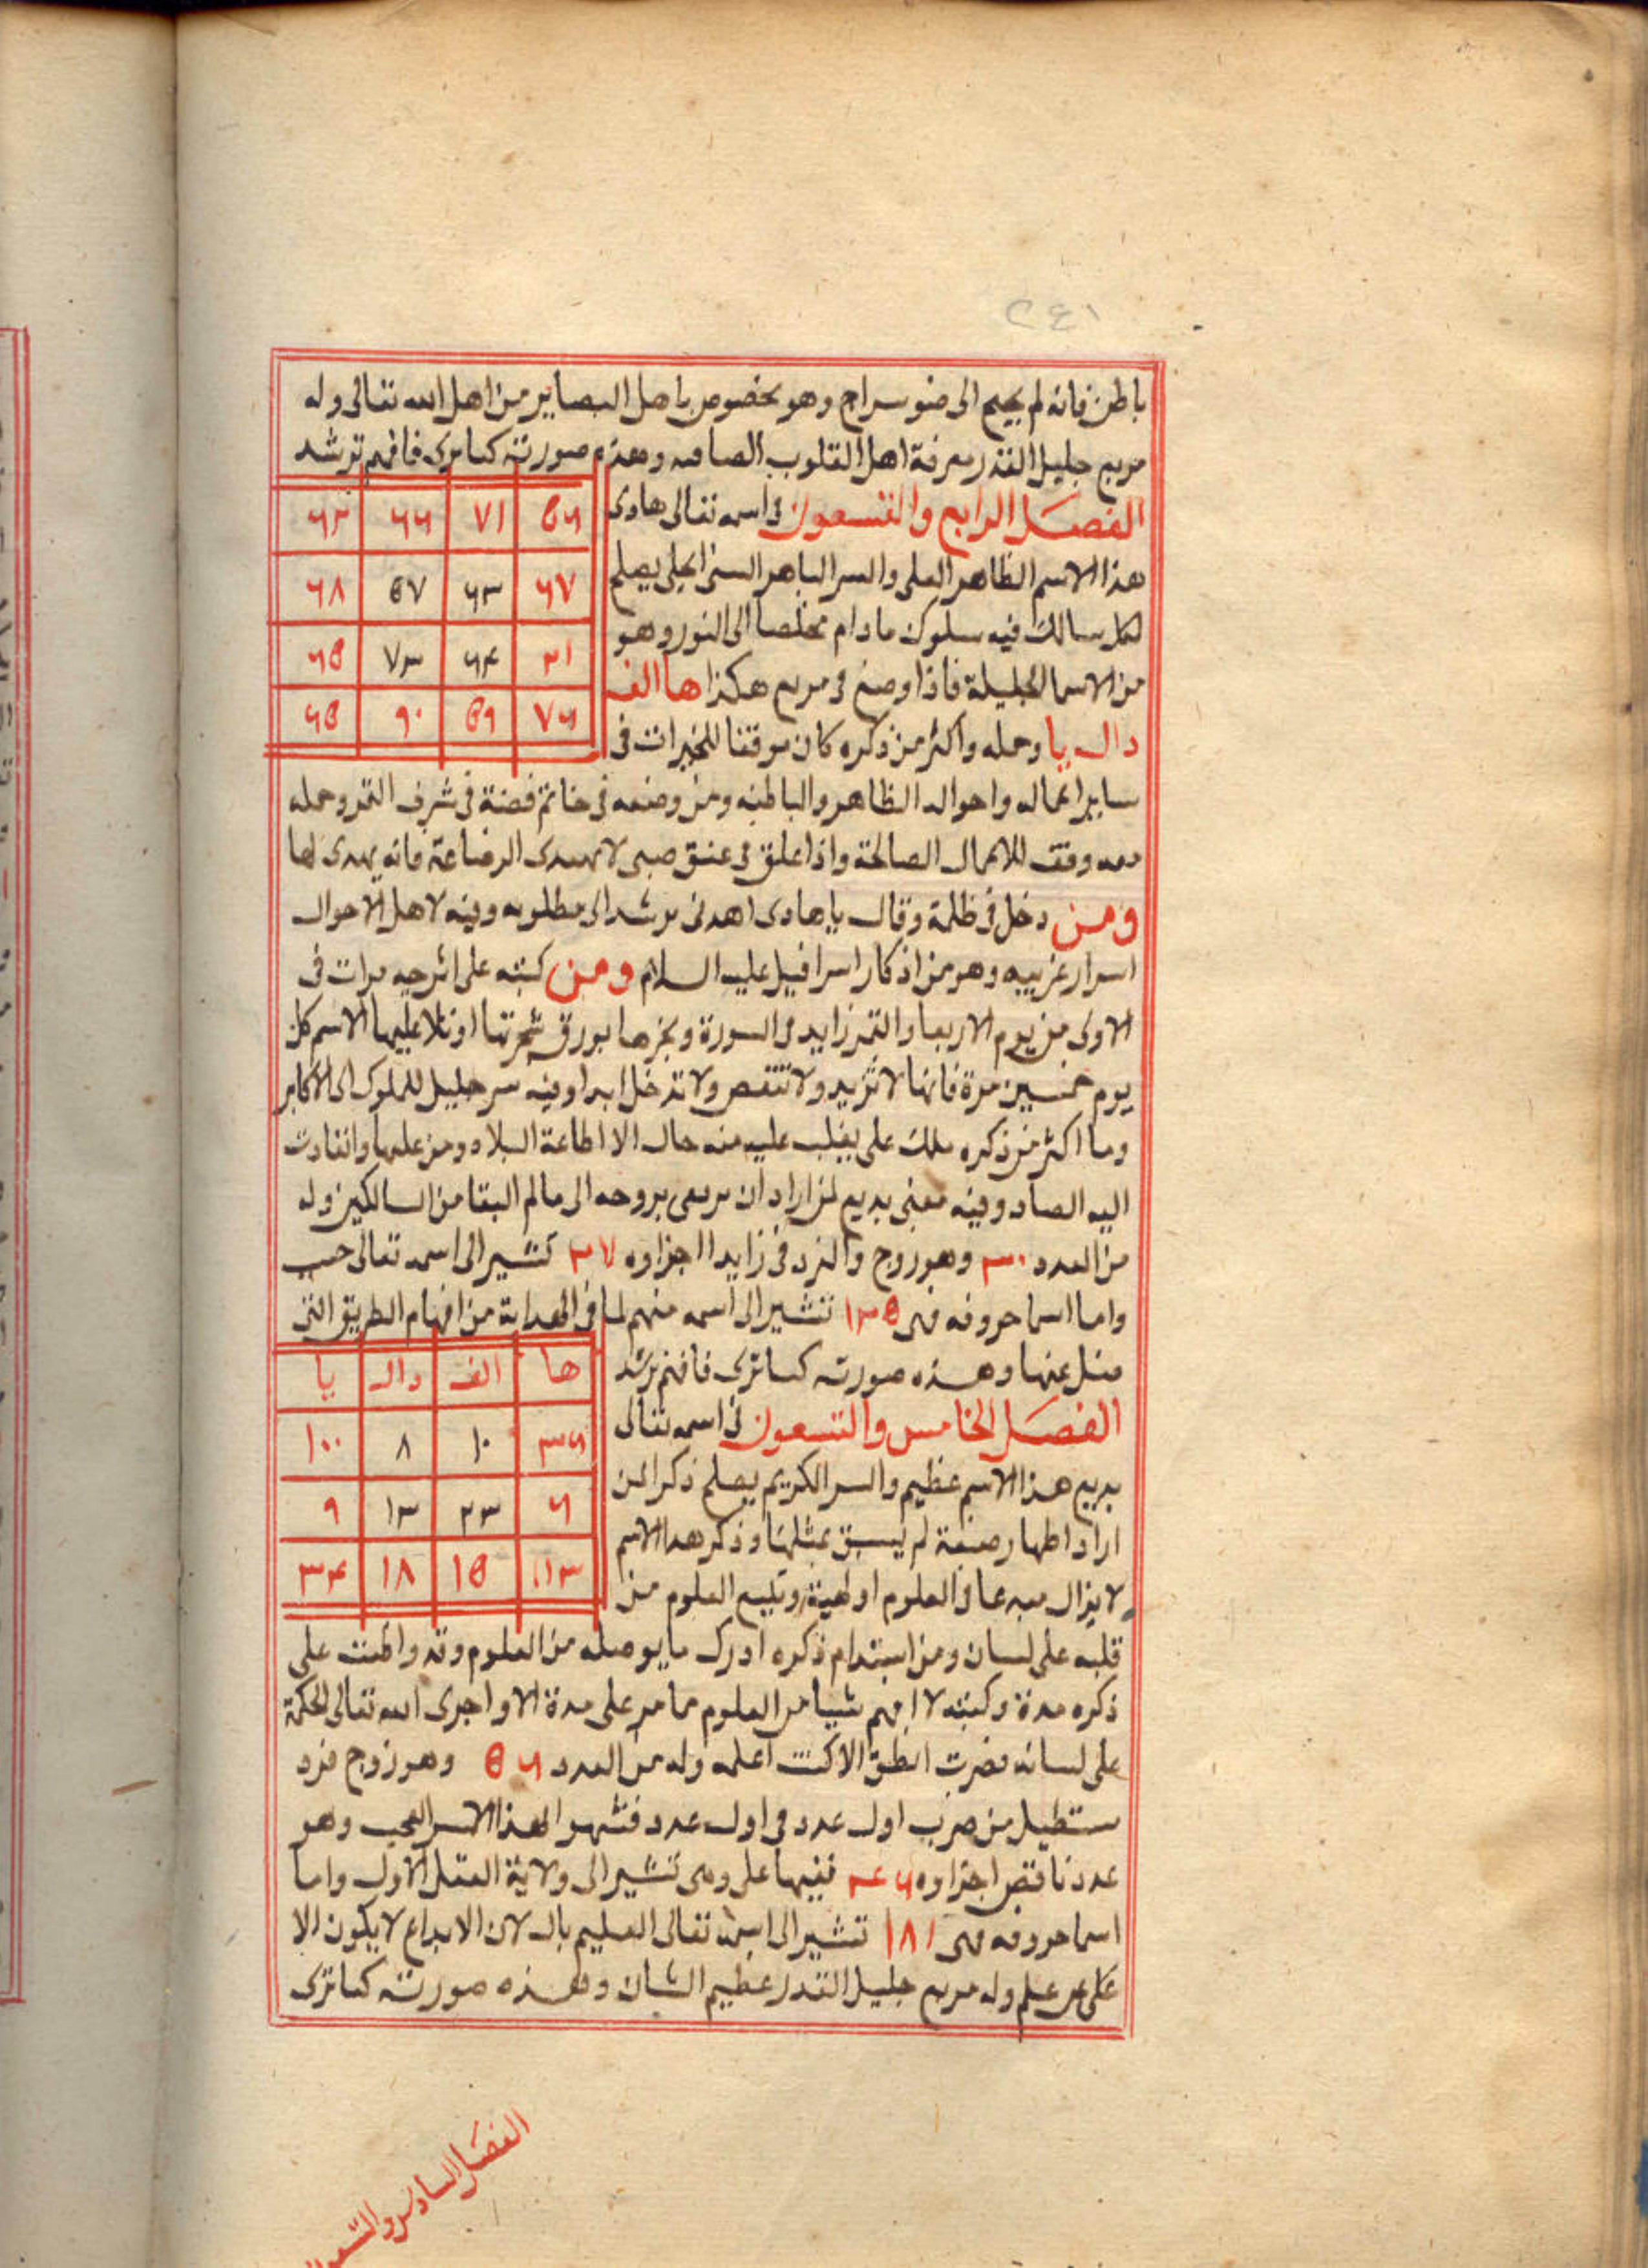 ٢٤١
باطن فانه لم يحتج الى ضو سراج وهو مخصوص باهل البصاير من اهل الله تعالى وله
مربع جليل القدر معرفة اهل القلوب الصافيه وهذه صورته كما ترى فافهم ترشد
٥٦ ٧١ ٦٦ ٦٢
الفصل الرابع والتسعون فى اسمه تعالى هادى
هذا الاسم الظاهر العلى والسر الباهر السنى الجلى يصلح
٦٧ ٦٣ ٥٧ ٦٨
لكل سالك فيه سلوك مادام مخلصا الى النور وهو
٢١ ٦٤ ٧٣ ٦٥
من الاسما الجليلة فاذا وضع فى مربع هكذا ها الف
٧٦ ٥٩ ٩٠ ٦٥
دال يا وحمله واكثر من ذكره كان موفقا للخيرات فى
ساير اعماله واحواله الظاهر والباطنه ومن وضعه فى خاتم فضة فى شرف القمر وحمله
معه وفق للاعمال الصالحة واذا علق فى عنق صبى لا يهتدى الرضاعة فانه يهدى لها
ومن دخل فى ظلمة وقال يا هادى اهدنى يرشد الى مطلوبه وفيه لاهل الاحوال
اسرار غريبه وهو من اذكار اسرافيل عليه السلام ومن كتبه على اترجيه مرات فى
الاولى من يوم الاربعا والقمر زايد فى السورة وبخرها بورق شجرتها او تلا عليها الاسم كل
يوم خمسين مرة فانها لا تزيد ولا تنقص ولا تدخل ابدا وفيه سر جليل للملوك الى الاكابر
وما اكثر من ذكره ملك على يغلب عليه منه حال الا اطاعة البلاد ومن عليها وانقادت
اليه الصاد وفيه معنى بديع لمن اراد ان يرعى بروحه الى عالم البقا من السالكين وله
من العدد ٢٠ وهو زوج والفرد فى زايد اجزاوه ٢٧ تشير الى اسمه تعالى حسيب
واما اسما حروفه فهى ١٣٥ تشير الى اسمه منهم لما فى الهداية من افهام الطريق التى
ها الف دال يا
مثل عنها وهذه صورته كما ترى فافهم ترشد
الفصل الخامس والتسعون فى اسمه تعالى
٣٦ ١٠ ٨ ١٠٠
بديع هذا الاسم عظيم والسر الكريم يصلح ذكرا لمن
٦ ٢٣ ١٣ ٩
اراد اظهار صنعة لم يسبق بمثلها وذكر هذا الاسم
١١٣ ١٥ ١٨ ٣٤
لا يزال مبدعا فى العلوم اولهية وتليع العلوم من
قلبه على لسان ومن استدام ذكره ادرك ما يوصله من العلوم وقد واظبت على
ذكره مدة وكنت لا افهم شيا من العلوم مما مر على مدة الا واجرى الله تعالى الحكمة
على لسانه فصرت انطق الاكنت اعلمه وله من العدد ٥٦ وهو زوج فرد
مستطيل من ضرب اول عدد فى اول عدد فشهر الهذا السر العجيب وهو
عدد ناقص اجزاوه ٦٤ ففيها على وهى تشير الى ولاية العقل الاول واما
اسما حروفه فهى ١٨١ تشير الى اسمه تعالى العليم بال لان الابداع لا يكون الا
على عن علم وله مربع جليل القدر عظيم الشان وهذه صورته كما ترى
الفصل السادس والتسعون